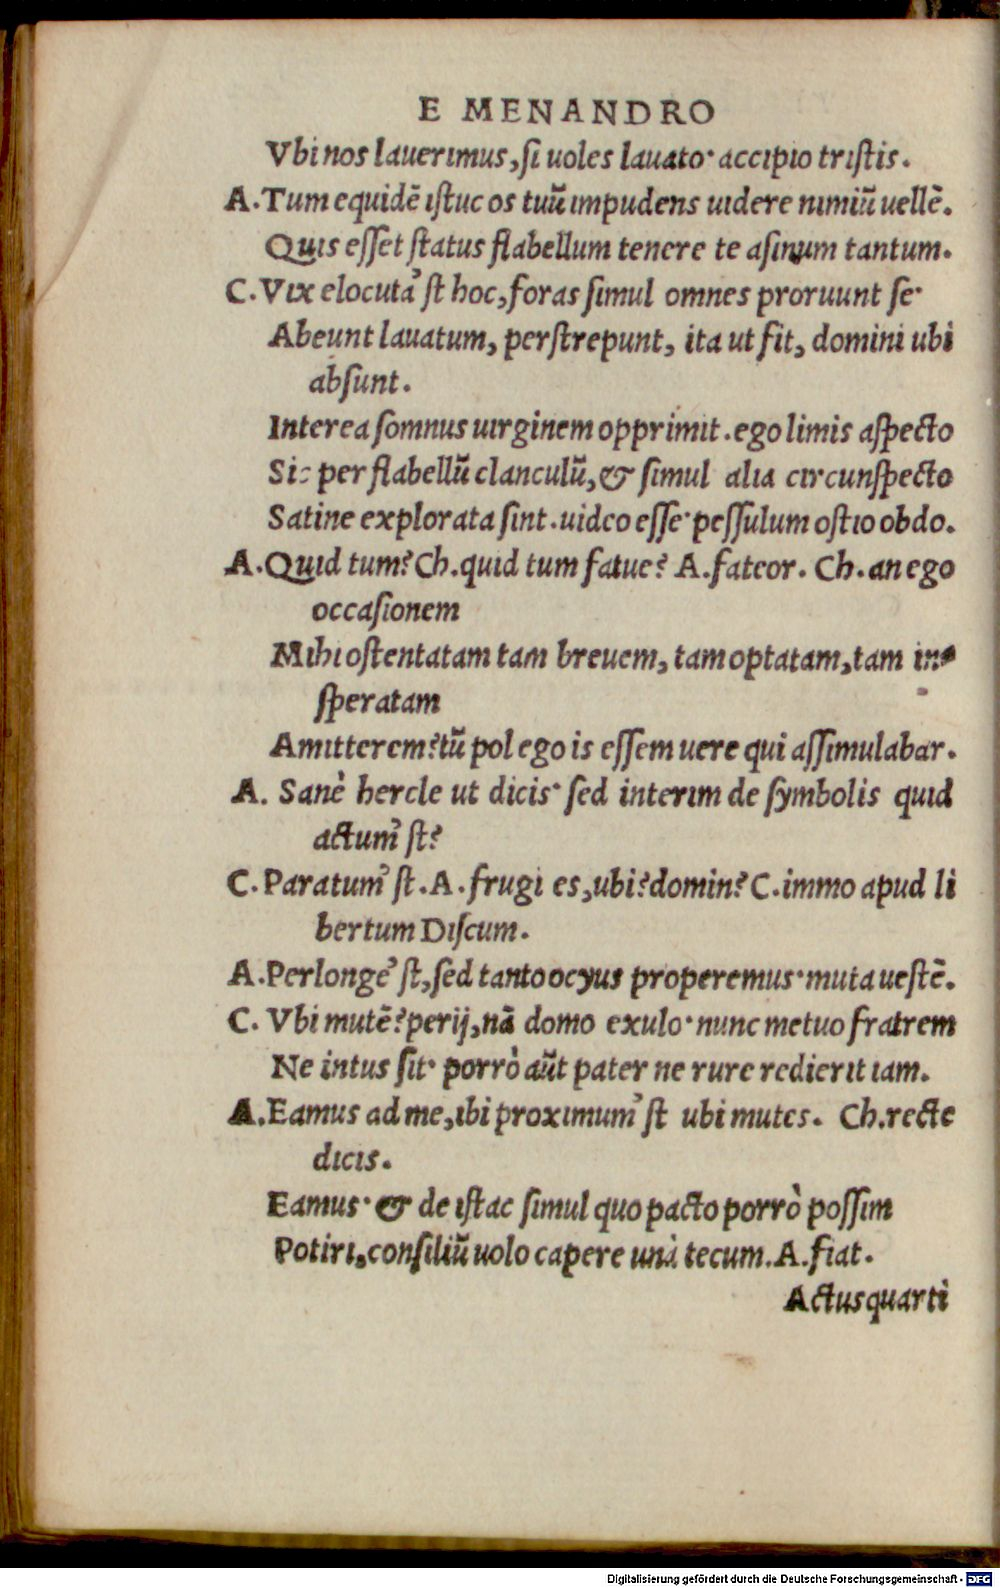 E MENANDRO
Vbi nos lauerimus, si uoles lauato· accipio tristis.
A. Tum equidē istuc os tuū impudens uidere nimiū uellē.
Quis esset status flabellum tenere te asinum tantum.
C. Vix elocuta' st hoc, foras simul omnes proruunt se·
Abeunt lauatum, perstrepunt, ita ut fit, domini ubi
absunt.
Interea somnus uirginem opprimit. ego limis aspecto
Sic per flabellū clanculū, & simul alia circunspecto
Satine explorata sint. uideo esse· pessulum ostio obdo.
A. Quid tum? Ch. quid tum fatue? A. fateor. Ch. an ego
occasionem
Mihi ostentatam tam breuem, tam optatam, tam in-
speratam
Amitterem? tū pol ego is essem uere qui assimulabar.
A. Sanè hercle ut dicis· sed interim de symbolis quid
actum' st?
C. Paratum' st. A. frugi es, ubi? domin? C. immo apud li
bertum Discum.
A. Perlonge' st, sed tanto ocyus properemus· muta uestē.
C. Vbi mutē? perij, nā domo exulo· nunc metuo fratrem
Ne intus sit· porrò aūt pater ne rure redierit iam.
A. Eamus ad me, ibi proximum' st ubi mutes. Ch. recte
dicis.
Eamus· & de istac simul quo pacto porrò possim
Potiri, consiliū uolo capere unà tecum. A. fiat.
Actus quarti
Digitalisierung gefördert durch die Deutsche Forschungsgemeinschaft - DFG